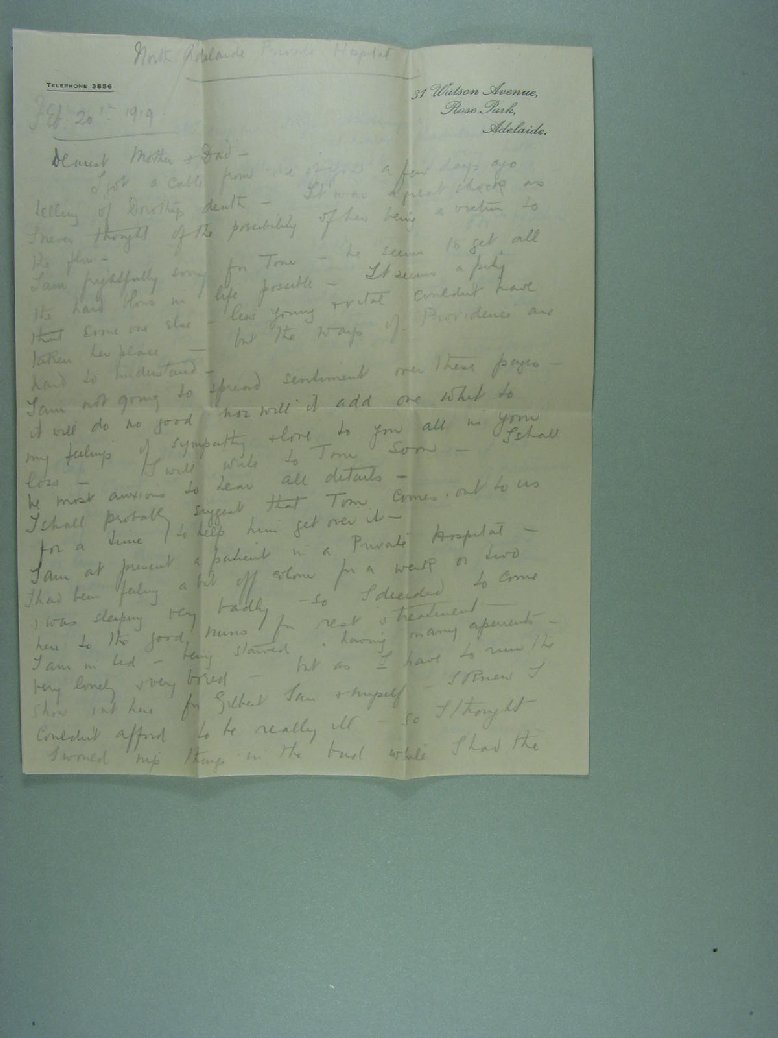 North Adelaide Private Hospital
TELEPHONE 3886
31 Watson Avenue,
Rose Park,
Adelaide.
Feb 20th 1919
Dearest Mother & Dad –
I got a cable from one of you a few days ago
telling of Dorothy's death – It was a great shock as
I never thought of the possibility of her being a victim to
the flu –
I am frightfully sorry for Tom – he seems to get all
the hard blows in life possible – It seems a pity
that some one else – less young & vital couldn't have
taken her place – but the ways of Providence are
hard to understand –
I am not going to spread sentiment over these pages –
it will do no good nor will it add one whit to
my feelings of sympathy & love to you all in your
loss – will write to Tom soon – I shall
be most anxious to hear all details –
I shall probably suggest that Tom comes out to us
for a time to help him get over it –
I am at present a patient in a Private Hospital –
I had been feeling a bit off colour for a week or two
& was sleeping very badly – so I decided to come
here to the good nuns for rest & treatment –
I am in bed – being starved & having many aperients –
very lonely & very bored – but as I have to run the
show out here for Gilbert Sam & myself – I knew I
couldn't afford to be really ill – so I thought
I would nip things in the bud while I had the